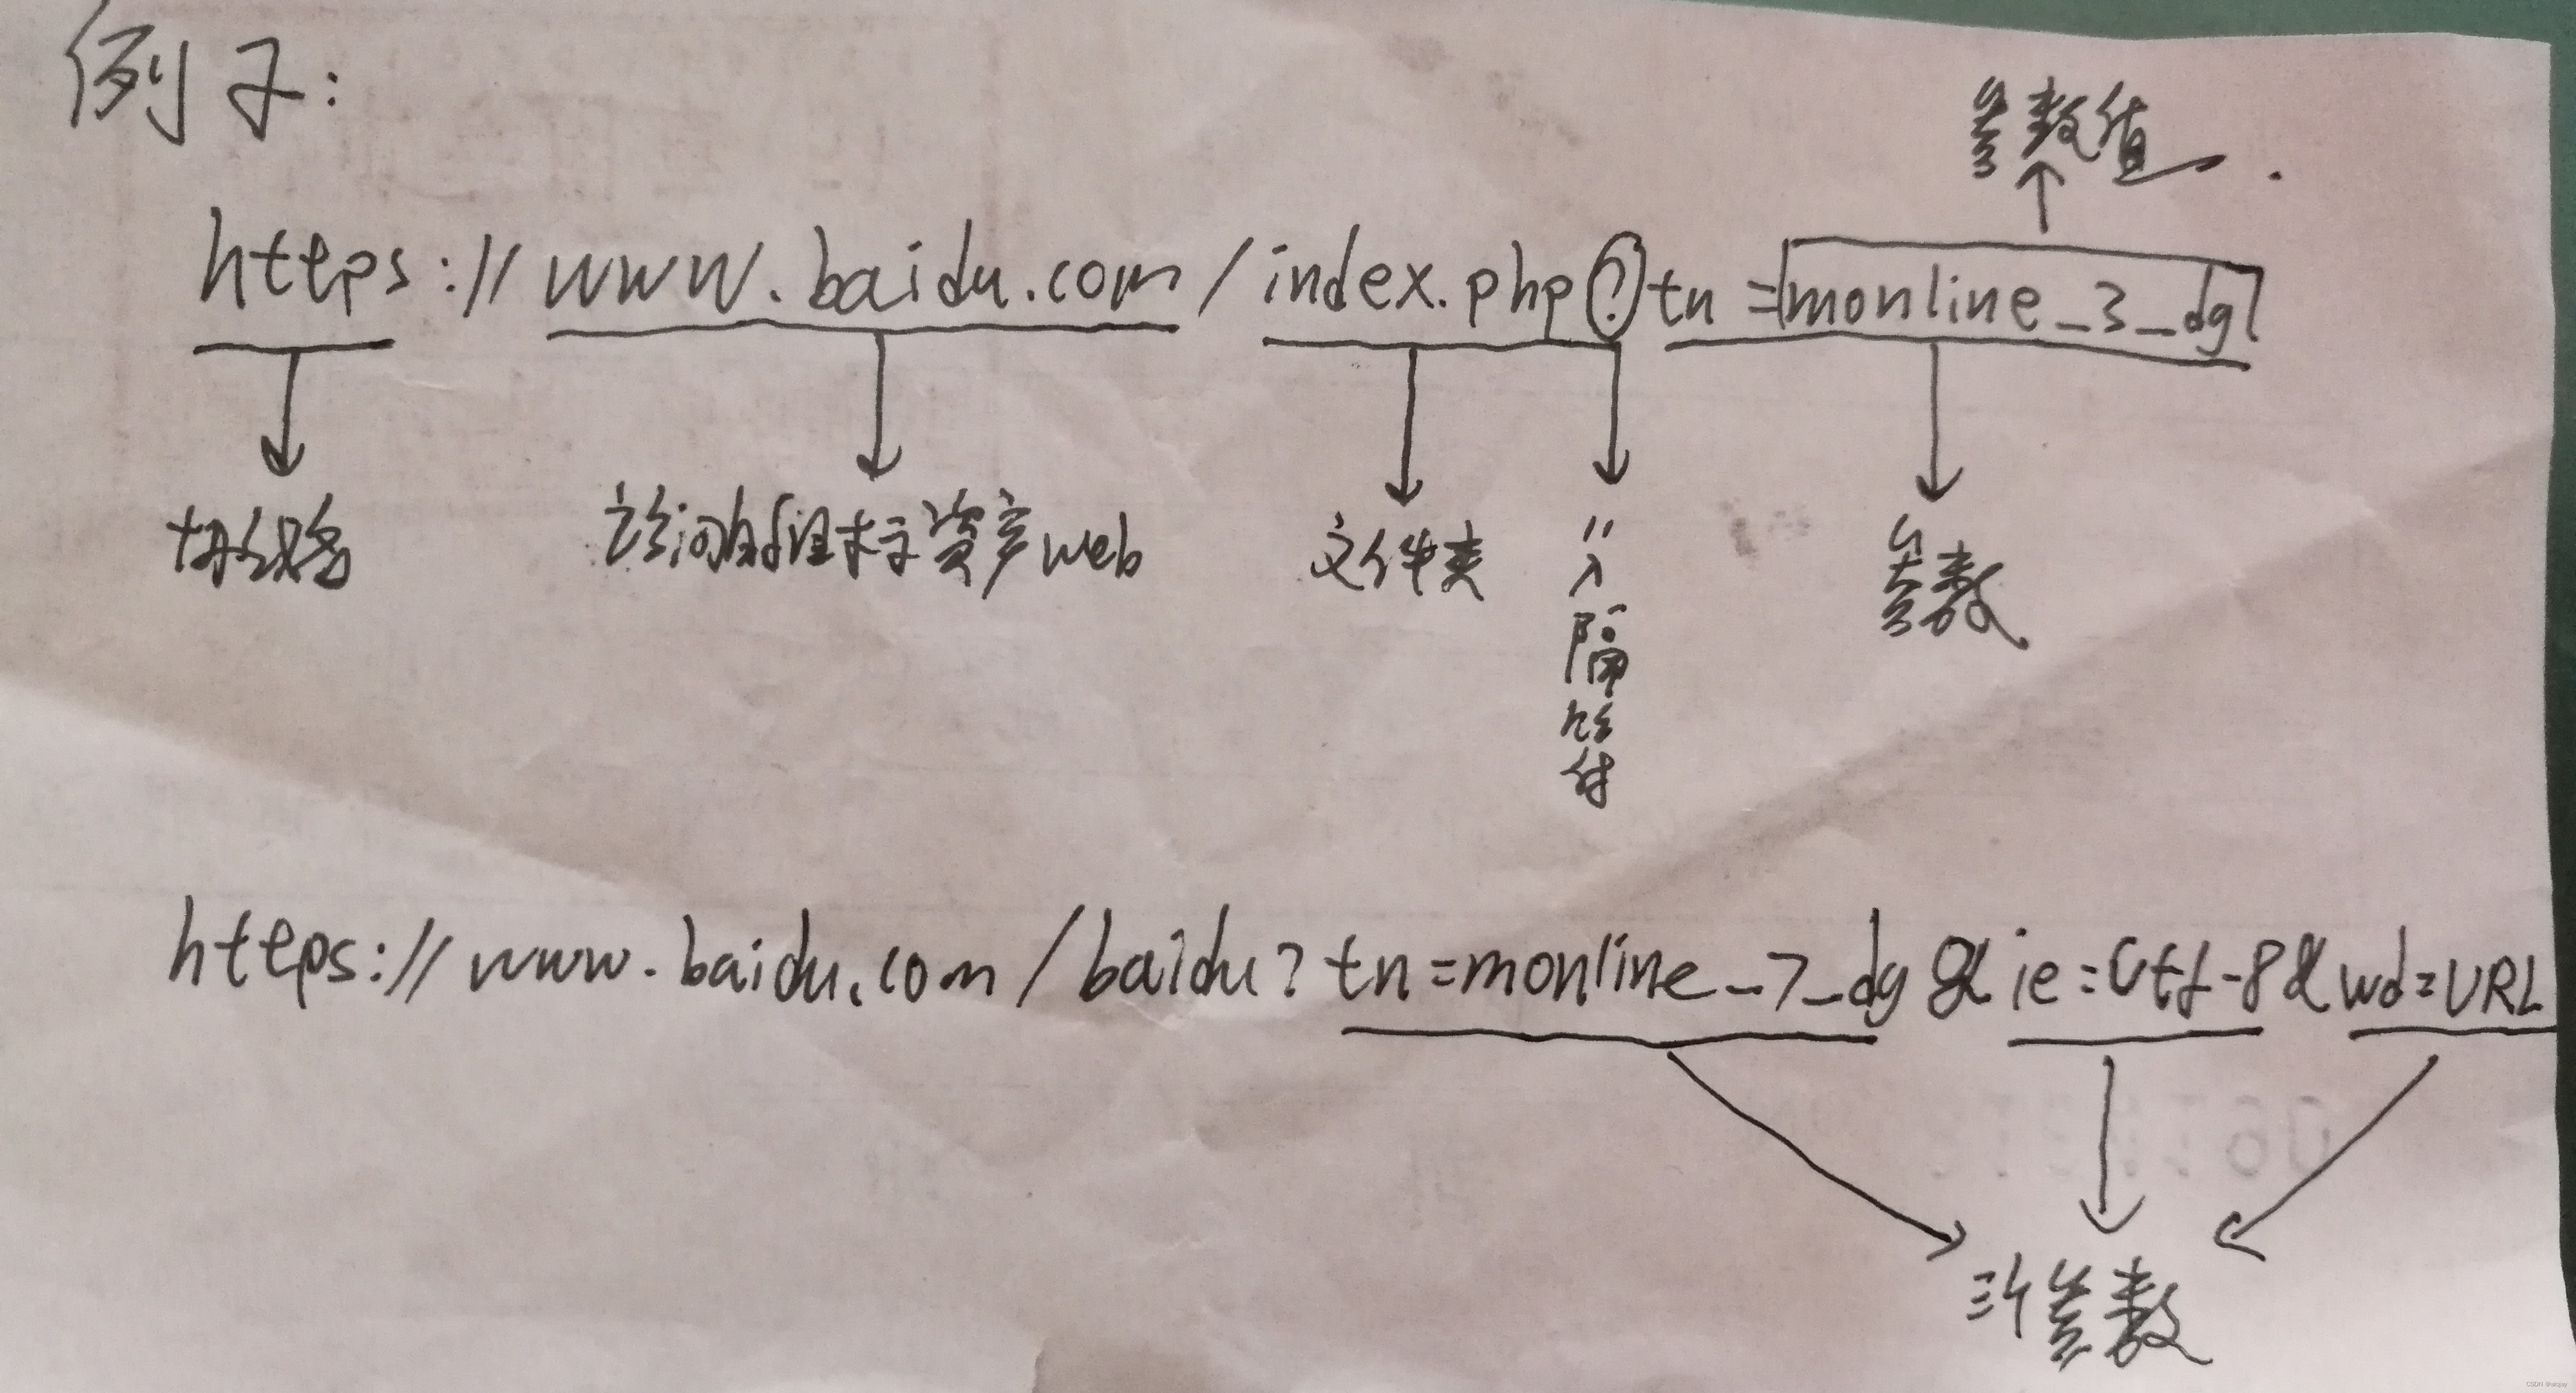 例子:
参数值
https://www.baidu.com/index.php?tn=monline_3_dg
访问 资产web
文件夹
隔
参数
https://www.baidu.com/baidu?tn=monline_7_dg&ie=utf-8&wd=URL
三个参数